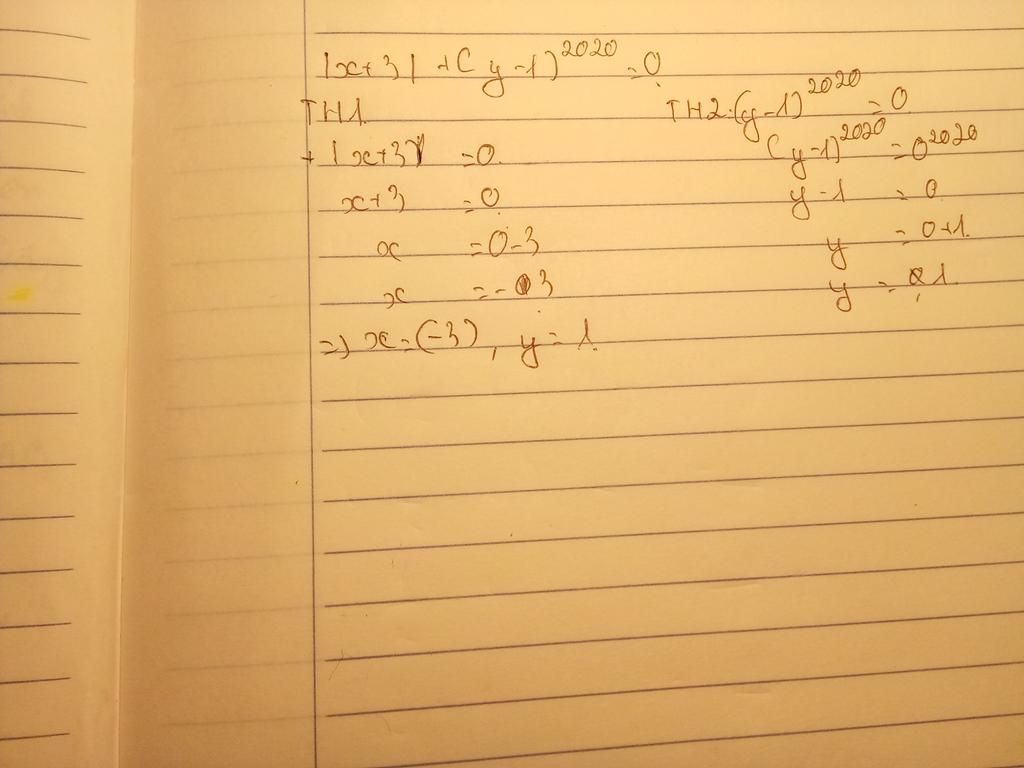 |x+3| + (y-1)^2020 = 0
TH1.
+ |x+3| = 0.
x+3 = 0
x = 0-3
x = -3
TH2. (y-1)^2020 = 0
(y-1)^2020 = 0^2020
y-1 = 0
y = 0+1.
y = 1.
=> x = (-3), y = 1.